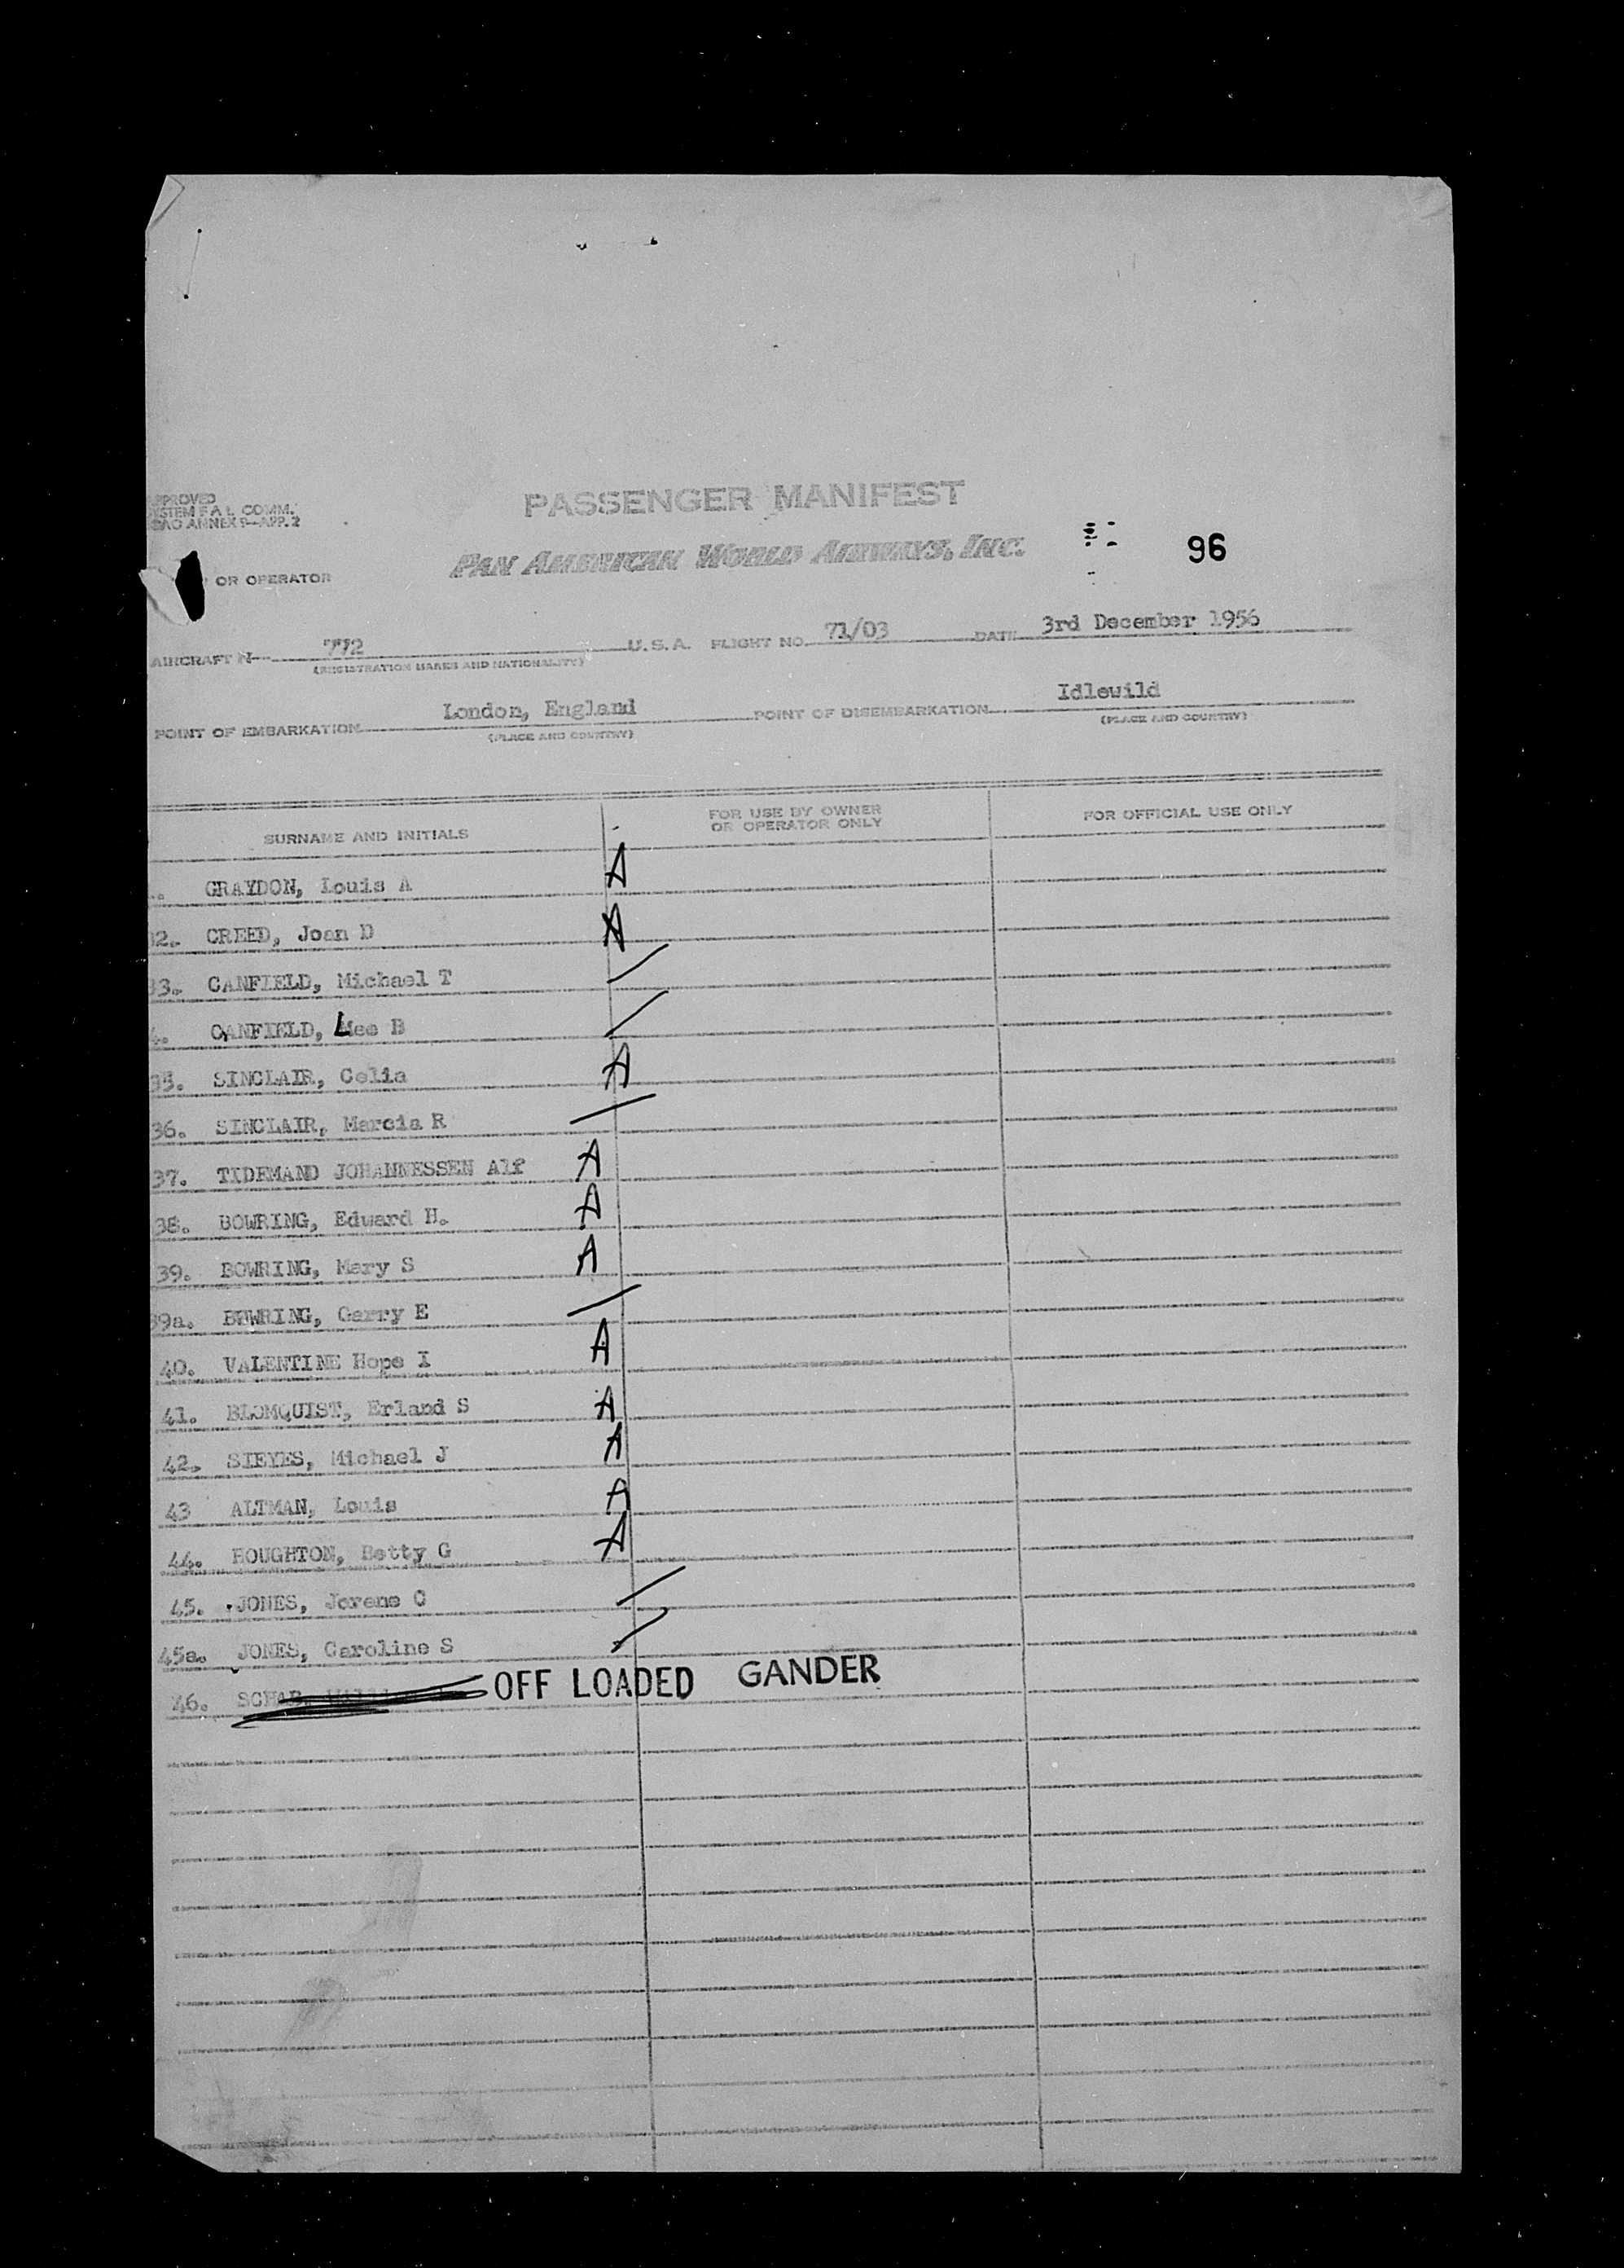 PASSENGER MANIFEST
PPROVED
YSTEM F A L COMM.
CAO ANNEX 9—APP. 2
PAN AMERICAN WORLD AIRWAYS, INC.
96
OR OPERATOR
AIRCRAFT N 772 U.S.A. FLIGHT NO. 71/03 DATE 3rd December 1956
(REGISTRATION MARKS AND NATIONALITY)
POINT OF EMBARKATION London, England POINT OF DISEMBARKATION Idlewild
(PLACE AND COUNTRY) (PLACE AND COUNTRY)
SURNAME AND INITIALS FOR USE BY OWNER OR OPERATOR ONLY FOR OFFICIAL USE ONLY
. GRAYDON, Louis A A
2. CREED, Joan D A
33. CANFIELD, Michael T /
4. CANFIELD, Lee B /
35. SINCLAIR, Celia A
36. SINCLAIR, Marcia R /
37. TIDEMAND JOHANNESSEN Alf A
38. BOWRING, Edward H. A
39. BOWRING, Mary S A
39a. BOWRING, Garry E /
40. VALENTINE Hope I A
41. BLOMQUIST, Erland S A
42. SIEYES, Michael J A
43 ALTMAN, Louis A
44. HOUGHTON, Betty G A
45. JONES, Jorene C /
45a. JONES, Caroline S /
46. OFF LOADED GANDER